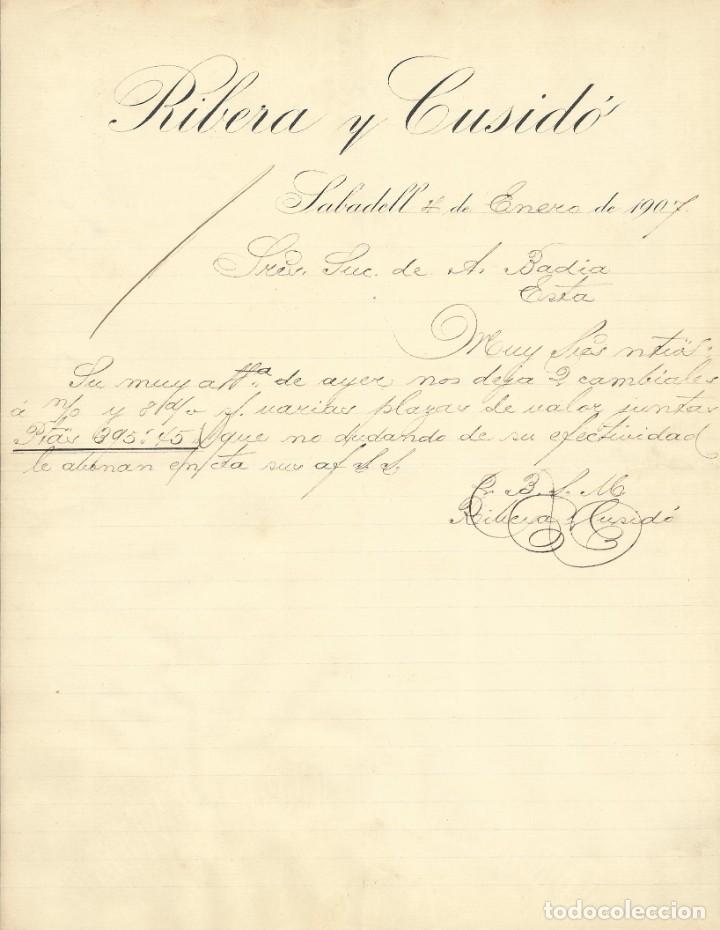 Ribera y Cusidó
Sabadell 4 de Enero de 1907.
Sres. Suc. de A. Badia
Esta
Muy Sres ntros:
Su muy atta. de ayer nos deja 2 cambiales
á n/o y 8 d/v s/. varias plazas de valor juntas
Ptas 395'45 que no dudando de su efectividad
le abonan en cta sus af S. S.
Q. B. S. M.
Ribera y Cusidó
todocoleccion